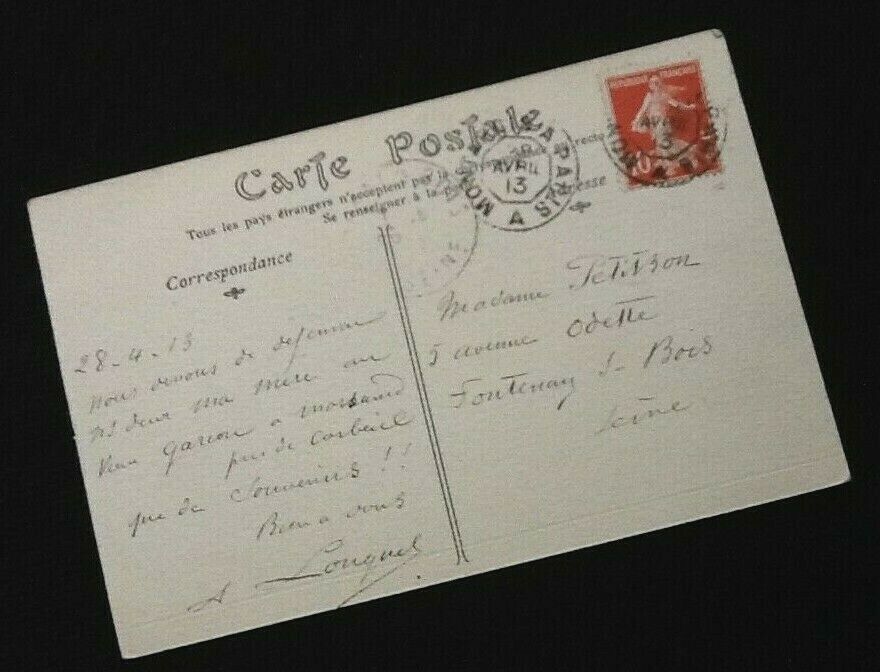 Carte Postale
Tous les pays étrangers n'acceptent pas la
Se renseigner à la
Correspondance
28-4-13
nous venons de déjeuner
ma mère au
Vieux garçon a morsand
près de Corbeil
que de Souvenirs !!
Bien a vous
A Longuet
Madame Petitbon
5 avenue Odette
Fontenay s- Bois
Seine
A PARIS
AVRIL
13
A
AVRIL
13
10